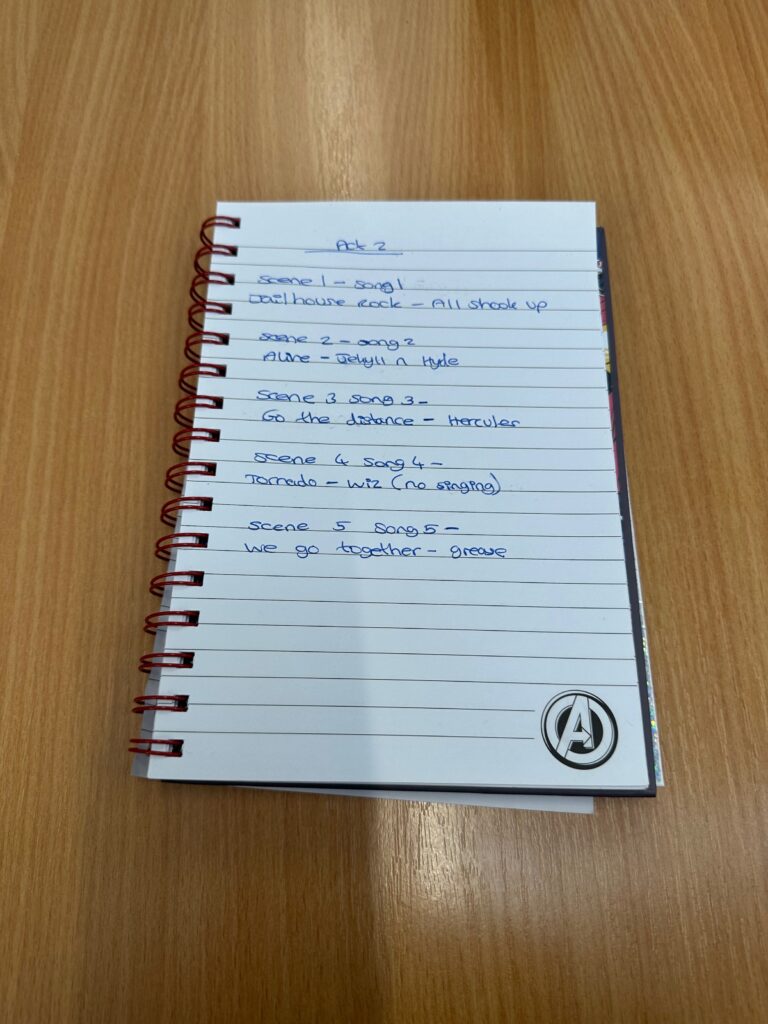 Act 2
Scene 1 - song 1
Jailhouse Rock - All shook up
Scene 2 - song 2
Alive - Jekyll n Hyde
Scene 3 song 3 -
Go the distance - Hercules
Scene 4 song 4 -
Tornado - Wiz (no singing)
Scene 5 song 5 -
We go together - grease
A